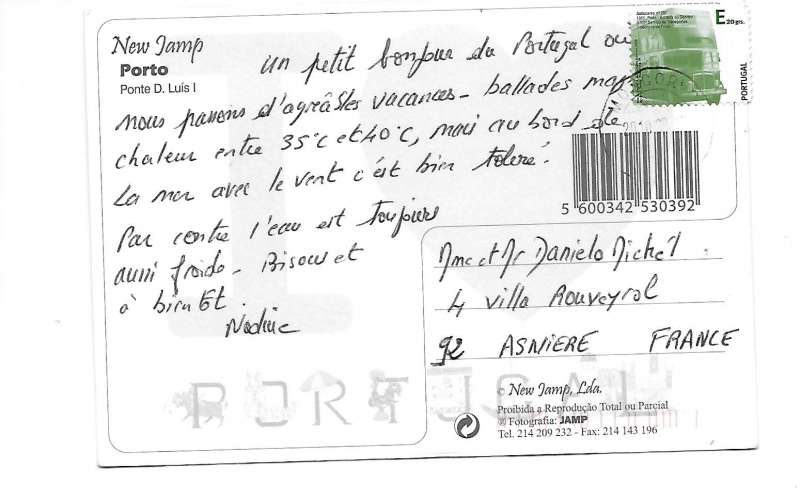 New Jamp
Porto
Ponte D. Luís I
Un petit bonjour du Portugal où
nous passons d'agréables vacances - ballades mer
chaleur entre 35°c et 40°c, mais au bord de
La mer avec le vent c'est bien toléré.
Par contre l'eau est toujours
aussi froide - Bisous et
à bientôt.
Nadine
E 20 grs.
PORTUGAL
5 600342 530392
Mme et Mr Danielo Michel
4 villa Rouveyrol
92 ASNIERE FRANCE
PORTUGAL
© New Jamp, Lda.
Proibida a Reprodução Total ou Parcial
® Fotografia: JAMP
Tel. 214 209 232 - Fax: 214 143 196